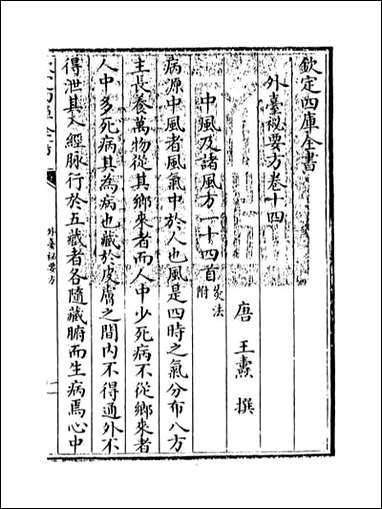 欽定四庫全書
外臺秘要方卷十四
唐 王燾 撰
中風及諸風方一十四首灸法附
病源中風者風氣中於人也風是四時之氣分布八方
主長養萬物從其鄉來者而人中少死病不從鄉來者
人中多死病其為病也藏於皮膚之間內不得通外不
得泄其入經脈行於五藏者各隨藏腑而生病焉心中
外臺秘要方